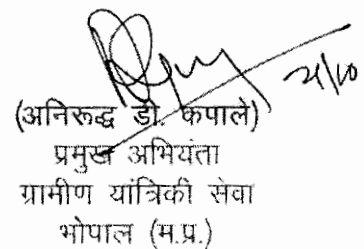 21/10
(अनिरूद्ध डी. कपाले)
प्रमुख अभियंता
ग्रामीण यांत्रिकी सेवा
भोपाल (म.प्र.)